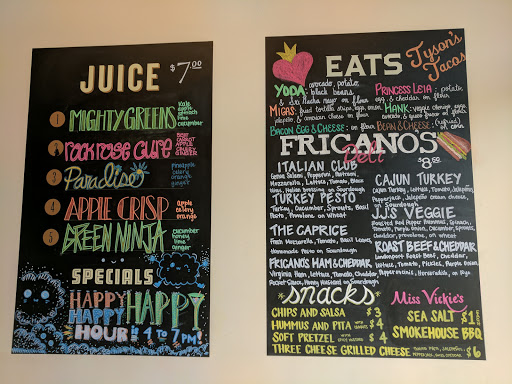 JUICE $7.00
1 MIGHTY GREENS
kale
apple
lime
cucumber
2 ROCK ROSE CURE
carrot
apple
ginger
3 Paradise
pineapple
4 APPLE CRISP
apple
celery
orange
5 GREEN NINJA
cucumber
honey
lime
ginger
SPECIALS
HAPPY HAPPY HAPPY
HOUR 4 TO 7 PM!
EATS Tyson's Tacos
YODA: avocado, potato, black beans
PRINCESS LEIA: potato, egg & cheddar on flour
MIGAS:
HANK:
BACON EGG & CHEESE: on flour
BEAN & CHEESE: on corn
FRICANOS Deli $8.00
ITALIAN CLUB
Genoa Salami, Pepperoni,
Mozzarella, Lettuce, Tomato, Black
Olives, Italian Dressing on Sourdough
TURKEY PESTO
Turkey, Cucumber, Sprouts, Basil
Pesto, Provolone, on Wheat
THE CAPRICE
Fresh Mozzarella, Tomato, Basil Leaves,
Homemade Pesto on Sourdough
FRICANOS HAM & CHEDDAR
Virginia Ham, Lettuce, Tomato, Cheddar,
Honey Mustard on Sourdough
CAJUN TURKEY
Cajun Turkey, Lettuce, Tomato, Jalapeños,
Pepperjack, Jalapeño cream cheese,
on Sourdough
J.J.'S VEGGIE
Roasted Red Pepper Hummus, Spinach,
Tomato, Purple Onion, Cucumber, Sprouts,
Cheddar, provolone, on wheat
ROAST BEEF & CHEDDAR
Londonport Roast Beef, Cheddar,
Lettuce, Tomato, Pickles, Purple Onion,
Pepperoncinis, Horseradish, on Rye
Snacks
CHIPS AND SALSA $3
HUMMUS AND PITA $4
SOFT PRETZEL $4
THREE CHEESE GRILLED CHEESE $6
Miss Vickie's
SEA SALT $1
SMOKEHOUSE BBQ